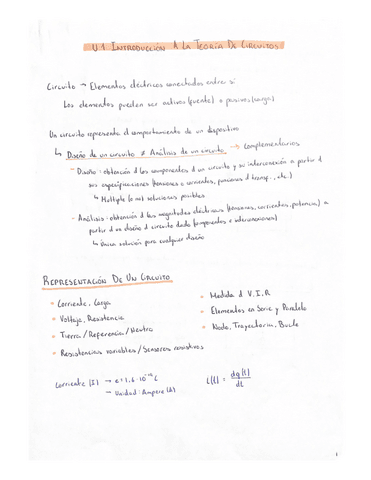 U.1. INTRODUCCIÓN A LA TEORÍA DE CIRCUITOS
Circuito → Elementos eléctricos conectados entre sí
Los elementos pueden ser activos (fuente) o pasivos (carga)
Un circuito representa el comportamiento de un dispositivo
↳ Diseño de un circuito ≠ Análisis de un circuito → Complementarios
- Diseño: obtención d los componentes d un circuito y su interconexión a partir d
sus especificaciones (tensiones o corrientes, funciones d transf., etc.)
↳ Múltiple (o no) soluciones posibles
- Análisis: obtención d las magnitudes eléctricas (tensiones, corrientes, potencias) a
partir d un diseño d circuito dado (componentes e interconexiones)
↳ Única solución para cualquier diseño
REPRESENTACIÓN DE UN CIRCUITO
• Corriente, Carga
• Voltaje, Resistencia
• Tierra / Referencia / Neutro
• Resistencias variables / Sensores resistivos
• Medida d V, I, R
• Elementos en Serie y Paralelo
• Nodo, Trayectoria, Bucle
Corriente (I) → e = 1,6 · 10⁻¹⁹ C
→ Unidad: Ampere (A)
i(t) = dq(t)/dt
1